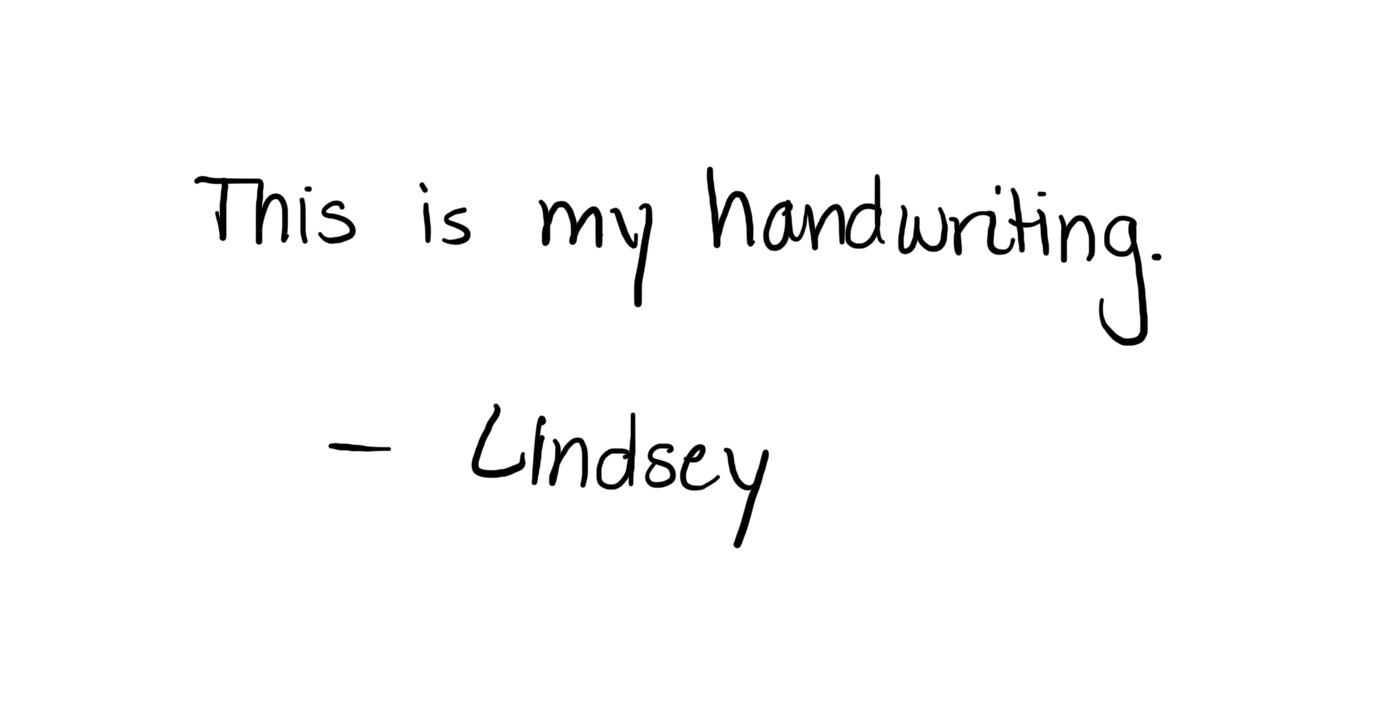 This is my handwriting.
— Lindsey